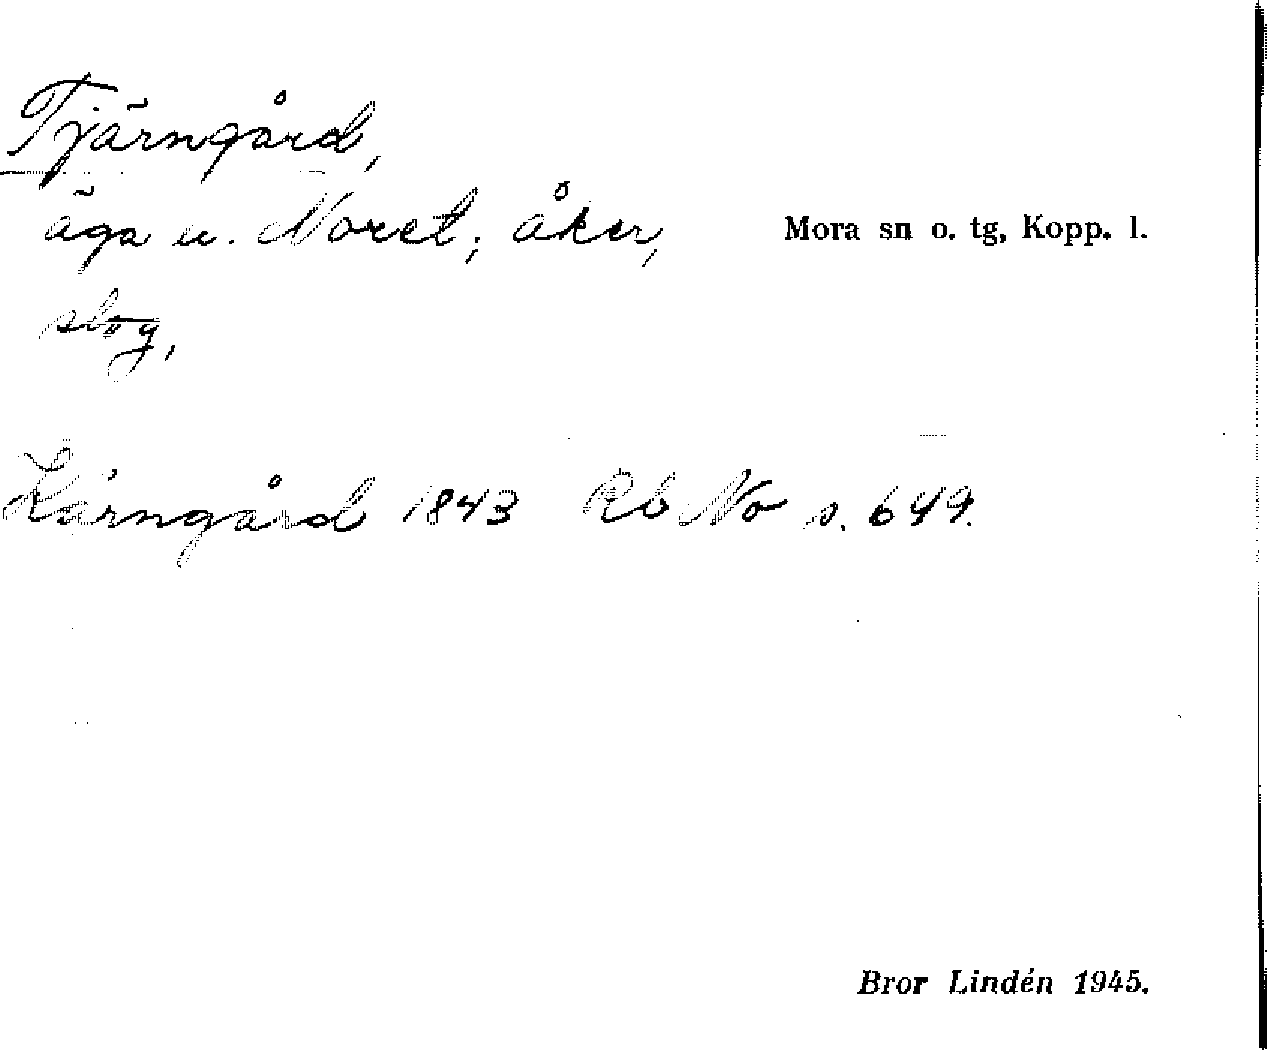 Tjärngård,
äga u. Noret; åker,
slog,
Mora sn o. tg, Kopp. l.
Kärngård 1843 Rb No s. 649.
Bror Lindén 1945.